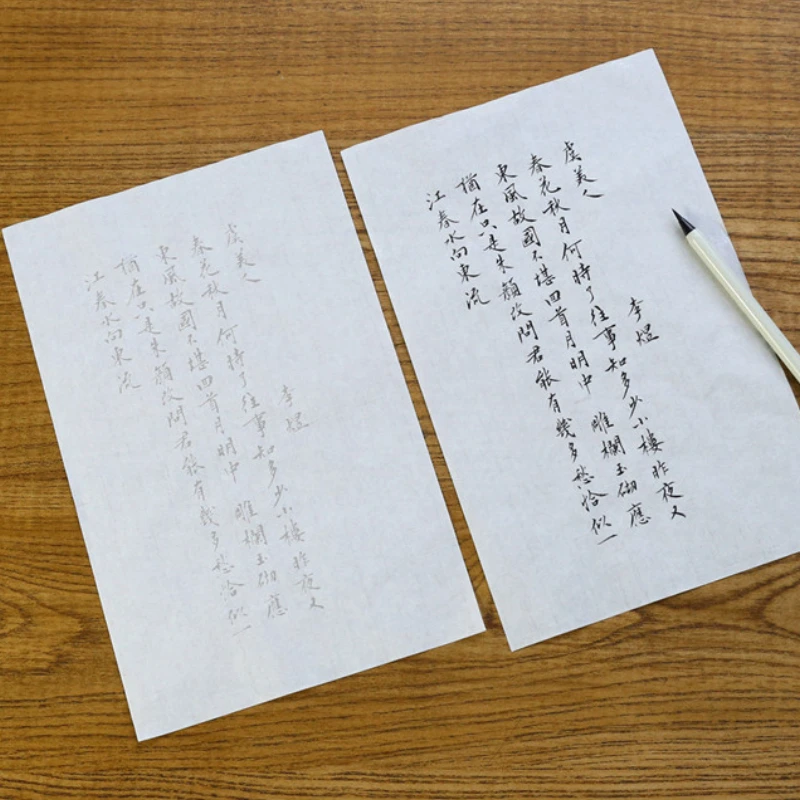 虞美人 李煜
春花秋月何時了往事知多少小樓昨夜又
東風故國不堪回首月明中 雕欄玉砌應
猶在只是朱顏改問君能有幾多愁恰似一
江春水向東流
虞美人 李煜
春花秋月何時了往事知多少小樓昨夜又
東風故國不堪回首月明中 雕欄玉砌應
猶在只是朱顏改問君能有幾多愁恰似一
江春水向東流